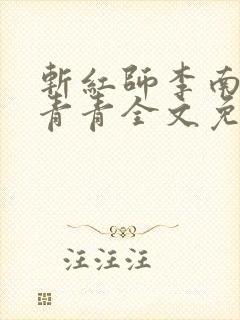 斬紅師李南
青青全文免
汪汪汪